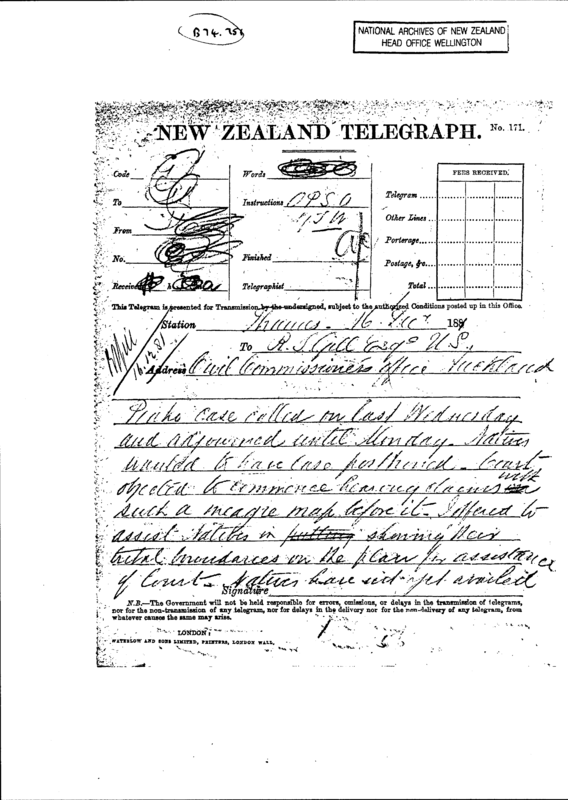 B 74. 75
NATIONAL ARCHIVES OF NEW ZEALAND
HEAD OFFICE WELLINGTON
NEW ZEALAND TELEGRAPH. No. 171.
Code
Words
FEES RECEIVED.
To
Instructions OPSO
Telegram
From
Other Lines
No.
Finished
Porterage
Postage, &c.
Received
Telegraphist
Total
This Telegram is presented for Transmission by the undersigned, subject to the authorised Conditions posted up in this Office.
Station Thames. 16 Decr 1881
To R. S. Gill Esqe U.S.,
Address Civil Commissioners Office Auckland
16/12.81
Piako case called on last Wednesday
and adjourned until Monday - Natives
wanted to have case postponed - Court
objected to commence hearing claims with
such a meagre map before it - I offered to
assist Natives in putting showing their
tribal boundaries on the plan for assistance
of Court - Natives have not yet availed
Signature
N.B.—The Government will not be held responsible for errors, omissions, or delays in the transmission of telegrams,
nor for the non-transmission of any telegram, nor for delays in the delivery nor for the non-delivery of any telegram, from
whatever causes the same may arise.
LONDON:
WATERLOW AND SONS LIMITED, PRINTERS, LONDON WALL.